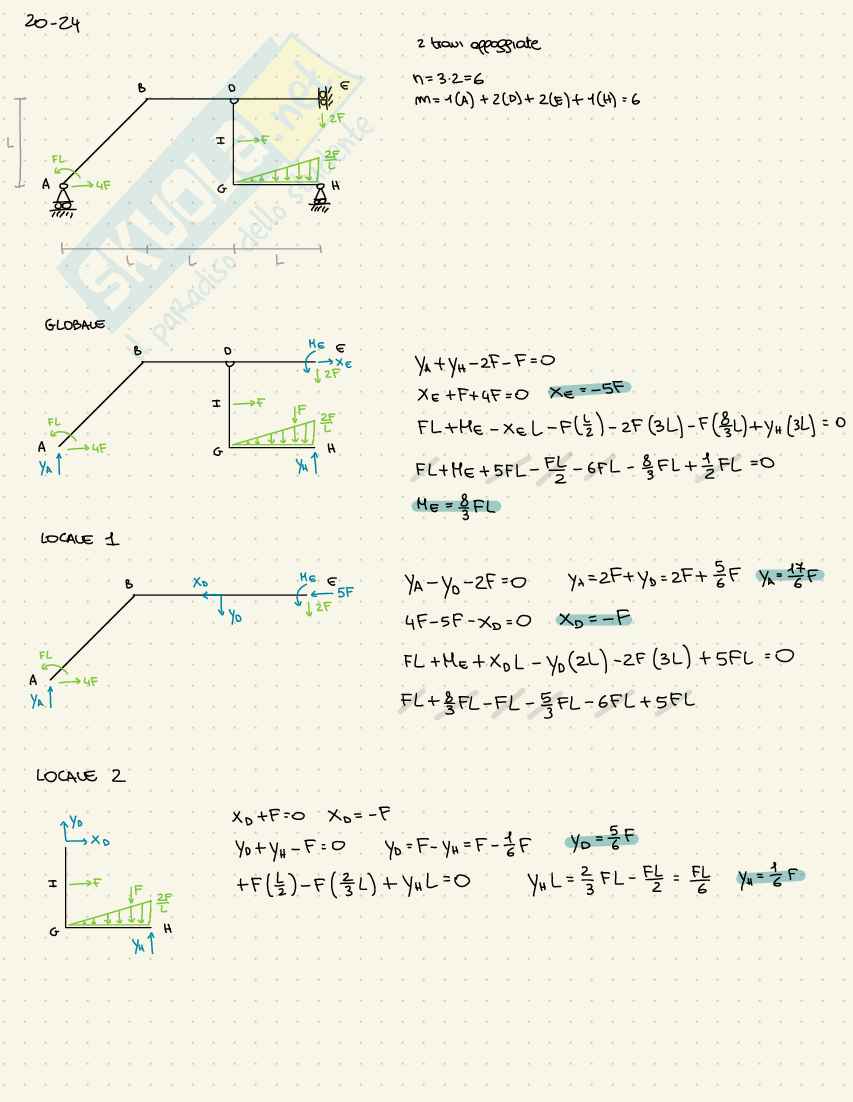 20-24
2 travi appoggiate
n=3·2=6
m=1(A)+2(D)+2(E)+1(H)=6
B D E
2F
L
I F
FL
2F/L
A 4F
G H
L L L
SKUOLA.net
il paradiso dello studente
GLOBALE
B D M_E E
X_E
2F
I F
FL
F 2F/L
A 4F
G H
Y_A Y_H
Y_A+Y_H-2F-F=0
X_E+F+4F=0 X_E=-5F
FL+M_E-X_E L-F(L/2)-2F(3L)-F(8/3 L)+Y_H(3L)=0
FL+M_E+5FL-FL/2-6FL-8/3 FL+1/2 FL=0
M_E=8/3 FL
LOCALE 1
B X_D M_E E
5F
Y_D 2F
FL
A 4F
Y_A
Y_A-Y_D-2F=0 Y_A=2F+Y_D=2F+5/6 F Y_A=17/6 F
4F-5F-X_D=0 X_D=-F
FL+M_E+X_D L-Y_D(2L)-2F(3L)+5FL=0
FL+8/3 FL-FL-5/3 FL-6FL+5FL
LOCALE 2
Y_D
X_D
I F
F 2F/L
G H
Y_H
X_D+F=0 X_D=-F
Y_D+Y_H-F=0 Y_D=F-Y_H=F-1/6 F Y_D=5/6 F
+F(L/2)-F(2/3 L)+Y_H L=0 Y_H L=2/3 FL-FL/2=FL/6 Y_H=1/6 F